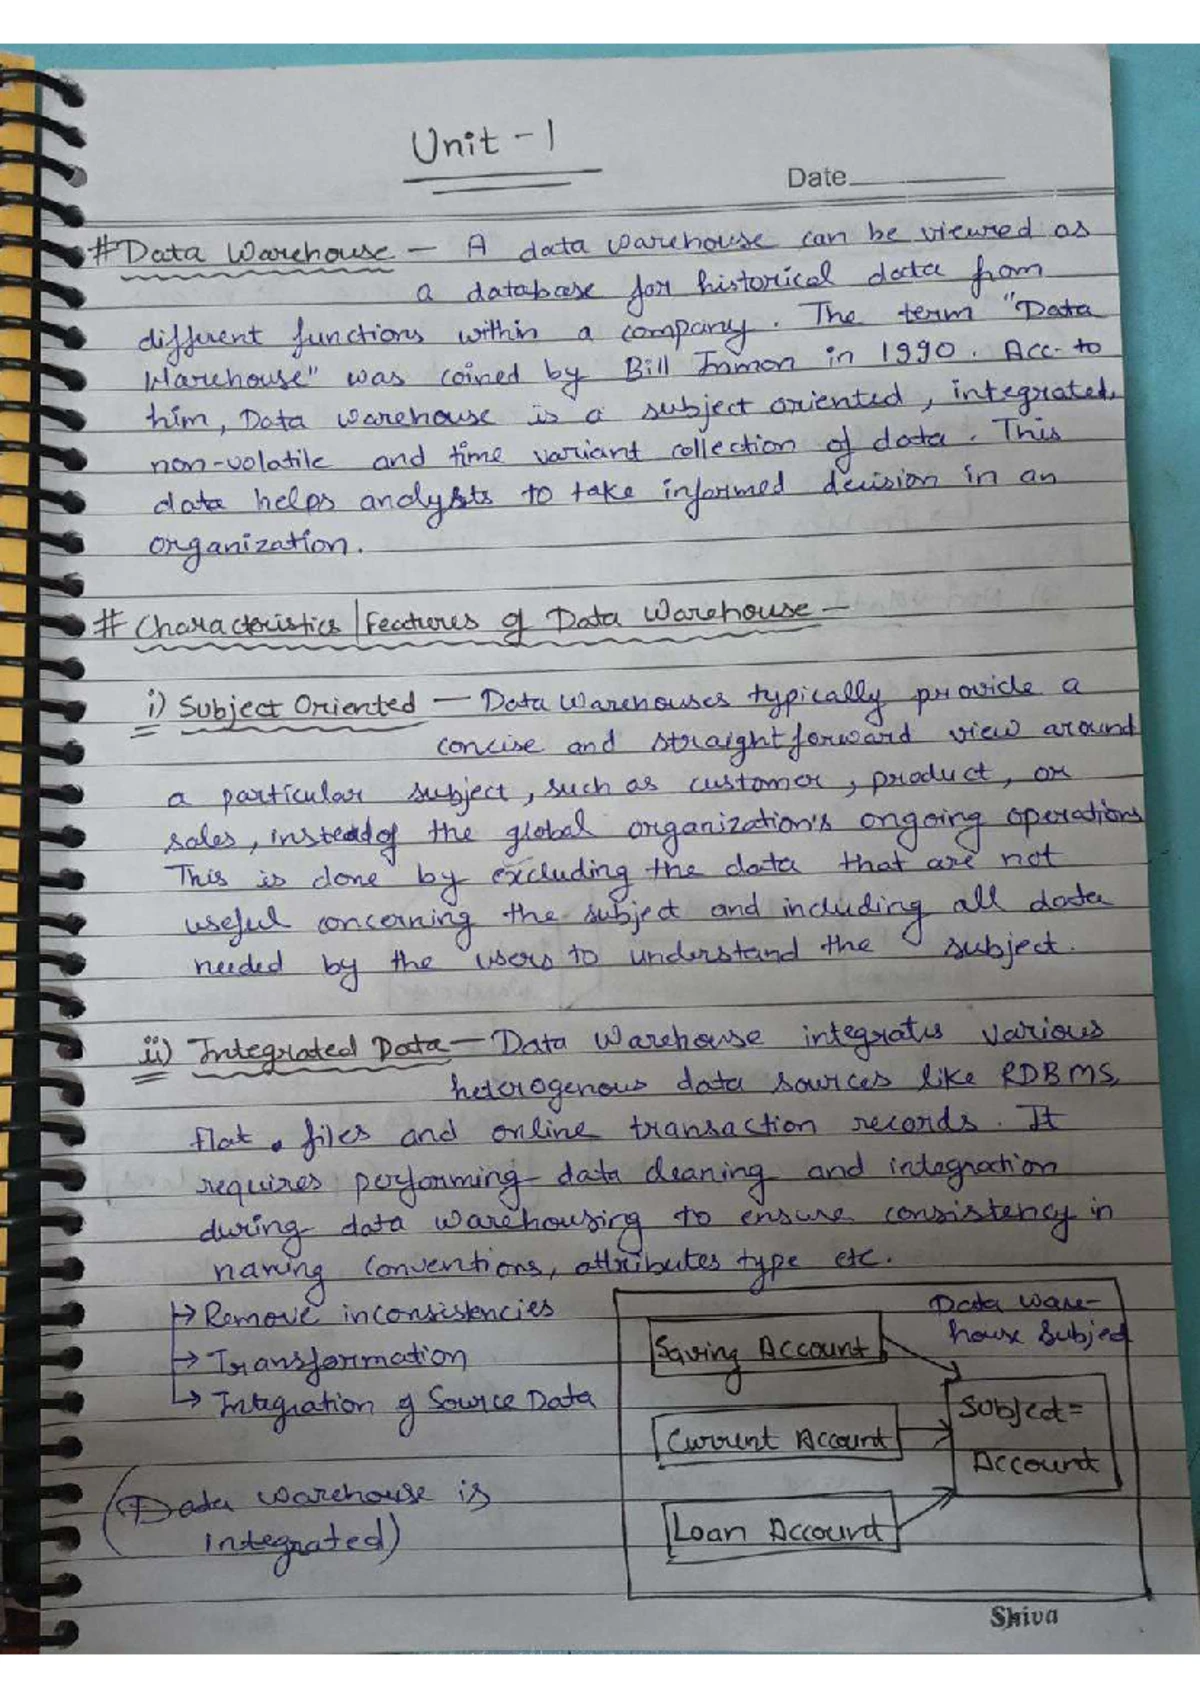 Unit - 1
Date
# Data Warehouse - A data warehouse can be viewed as
a database for historical data from
different functions within a company. The term "Data
Warehouse" was coined by Bill Inmon in 1990. Acc. to
him, Data warehouse is a subject oriented, integrated,
non-volatile and time variant collection of data. This
data helps analysts to take informed decision in an
organization.
# Characteristics/Features of Data Warehouse -
i) Subject Oriented - Data Warehouses typically provide a
concise and straightforward view around
a particular subject, such as customer, product, or
sales, instead of the global organization's ongoing operations
This is done by excluding the data that are not
useful concerning the subject and including all data
needed by the users to understand the subject.
ii) Integrated Data - Data Warehouse integrates various
heterogenous data sources like RDBMS,
flat files and online transaction records. It
requires performing data cleaning and integration
during data warehousing to ensure consistency in
naming conventions, attributes type etc.
→ Remove inconsistencies
→ Transformation
→ Integration of Source Data
(Data warehouse is
integrated)
Data ware-
house Subject
Saving Account
Current Account
Loan Account
Subject =
Account
Shiva